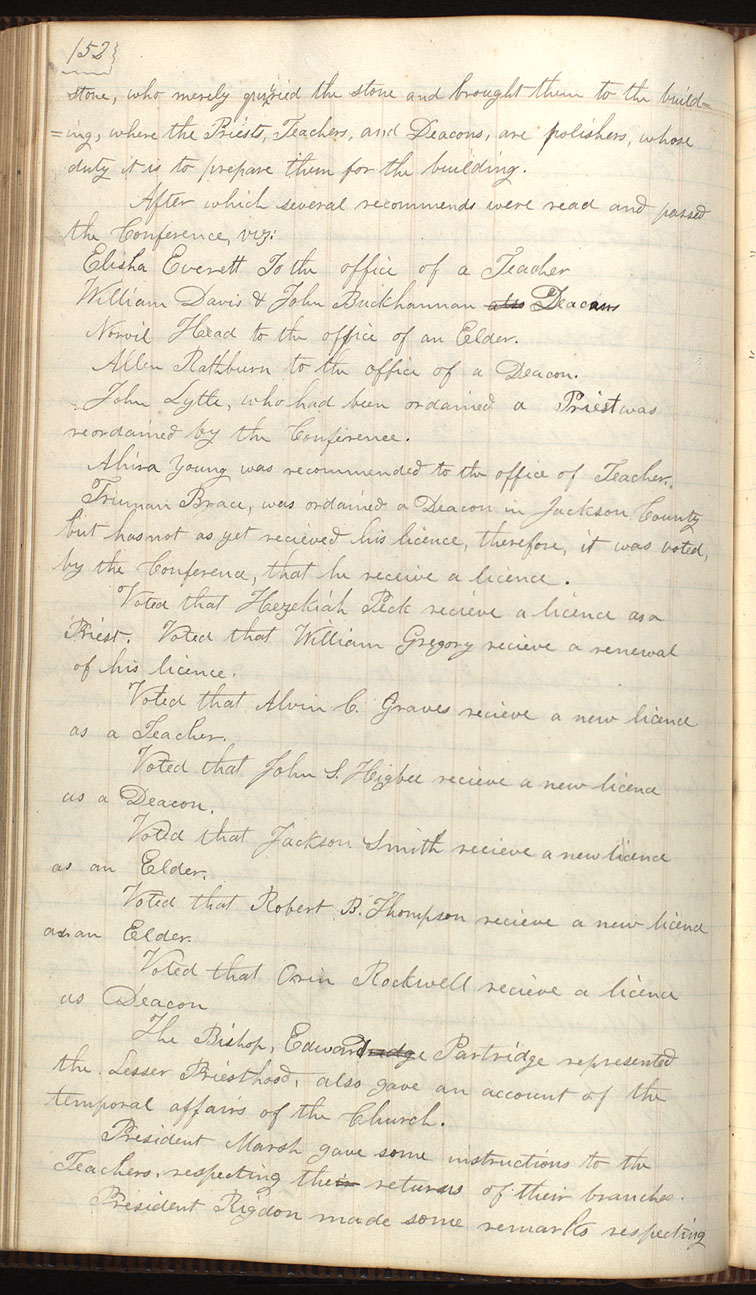 152}
stone, who merely quizried the stone and brought them to the build=
=ing, where the Priests, Teachers, and Deacons, are polishers, whose
duty it is to prepare them for the building.
After which several recommends were read and passed
the Conference, viz:
Elisha Everett To the office of a Teacher
William Davis & John Buckhannan also Deacons
Norvil Head to the office of an Elder.
Allen Rathburn to the office of a Deacon.
John Lytle, who had been ordained a Priest was
reordained by the Conference.
Ahira Young was recommended to the office of Teacher.
Truman Brace, was ordained a Deacon in Jackson County
but has not as yet recieved his licence, therefore, it was voted,
by the Conference, that he receive a licence.
Voted that Hezekiah Peck recieve a licence as a
Priest. Voted that William Gregory recieve a renewal
of his licence.
Voted that Alvin C. Graves recieve a new licence
as a Teacher.
Voted that John S. Higbee recieve a new licence
as a Deacon.
Voted that Jackson Smith recieve a new licence
as an Elder.
Voted that Robert B. Thompson recieve a new licence
as an Elder.
Voted that Orin Rockwell recieve a licence
as Deacon
The Bishop, Edward Partridge represented
the Lesser Priesthood, also gave an account of the
temporal affairs of the Church.
President Marsh gave some instructions to the
Teachers, respecting their returns of their branches.
President Rigdon made some remarks respecting